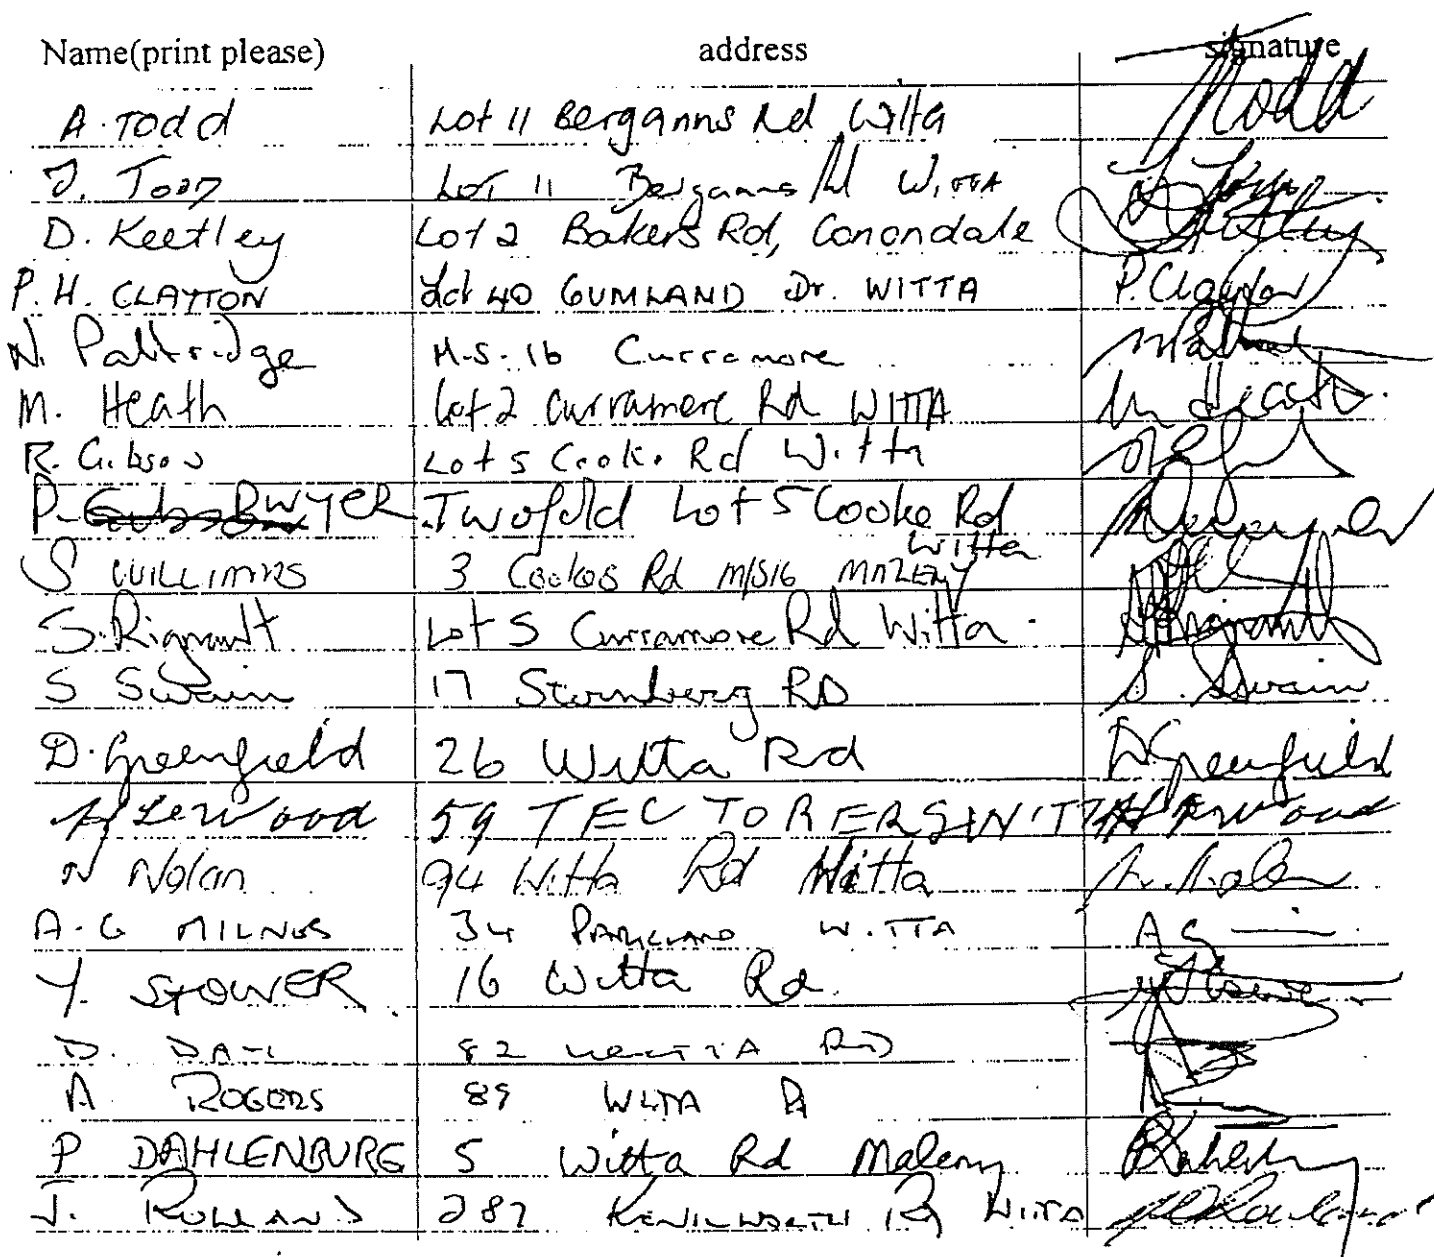 Name(print please) address signature
A. Todd Lot 11 Berganns Rd Witta Todd
J. Todd Lot 11 Berganns Rd Witta
D. Keetley Lot 2 Bakers Rd, Conondale
P. H. CLAYTON Lot 40 GUMLAND Dr. WITTA P. Clayton
N. Paltridge M.S. 16 Curramore
M. Heath Lot 2 Curramore Rd WITTA M Heath
R. Gibson Lot 5 Cooke Rd Witta
P. DWYER Twofold Lot 5 Cooke Rd
Witta
S WILLIAMS 3 Cookes Rd M/S16 MALENY
S. Rignault Lot 5 Curramore Rd Witta
S Swain 17 Sternberg RD S. Swain
D. Greenfield 26 Witta Rd D Greenfield
59
N Nolan 94 Witta Rd Witta N. Nolan
A. G MILNES 34 PARKLAND WITTA A G
Y. STOWER 16 Witta Rd. Y Stower
D. 82 RD
A ROGERS 89 WITTA R
P DAHLENBURG 5 Witta Rd Maleny
J. ROWLANDS 287 KENILWORTH Rd WITTA